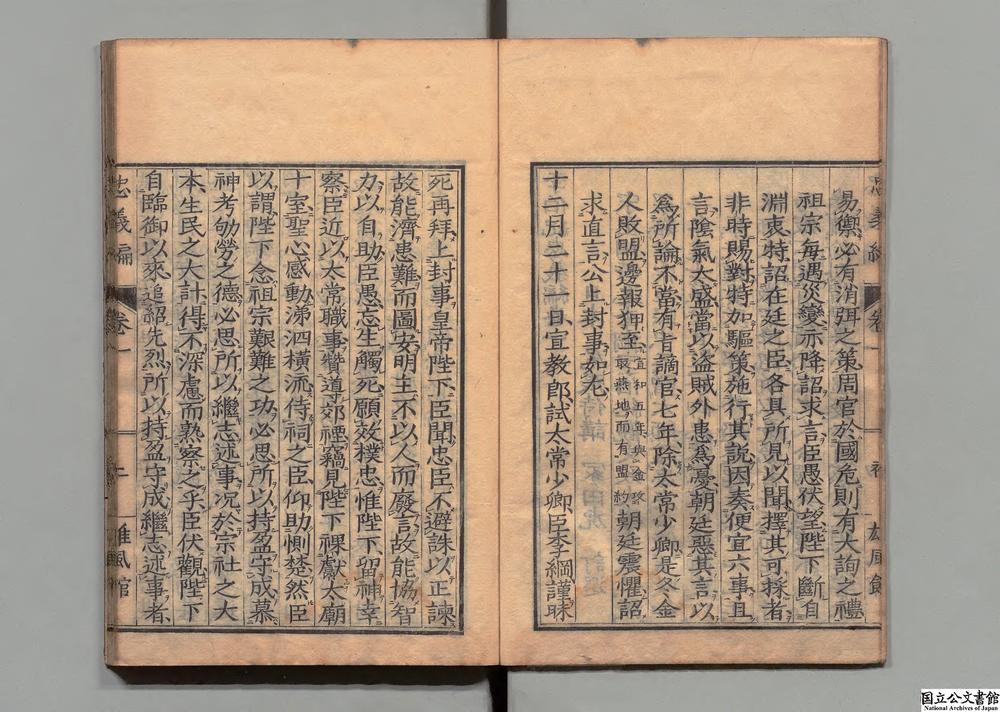 易禦必有消弭之策周官於國危則有大詢之禮
祖宗每遇災變亦降詔求言臣愚伏望陛下斷自
淵衷特詔在廷之臣各具所見以聞擇其可採者
非時賜對特加驅策施行其說因奏便宜六事且
言陰氣大盛當以盜賊外患為憂朝廷惡其言以
為所論不當有旨謫官七年除太常少卿是冬金
人敗盟邊報狎至宣和五年與金攻取燕地而有盟約朝廷震懼詔
求直言公上封事如左
十二月二十一日宣教郎試太常少卿臣李綱謹昧
死再拜上封事皇帝陛下臣聞忠臣不避誅以正諫
故能濟患難而圖安明主不以人而廢言故能協智
力以自助臣愚忘生觸死願效樸忠惟陛下留神幸
察臣近以太常職事贊導郊禋竊見陛下祼獻太廟
十室聖心感動涕泗橫流侍祠之臣仰助惻楚然臣
以謂陛下念祖宗艱難之功必思所以持盈守成慕
神考劬勞之德必思所以繼志述事況於宗社之大
本生民之大計得不深慮而熟察之乎臣伏觀陛下
自臨御以來追紹先烈所以持盈守成繼志述事者
忠義編
卷一
二
雄風館
国立公文書館
National Archives of Japan